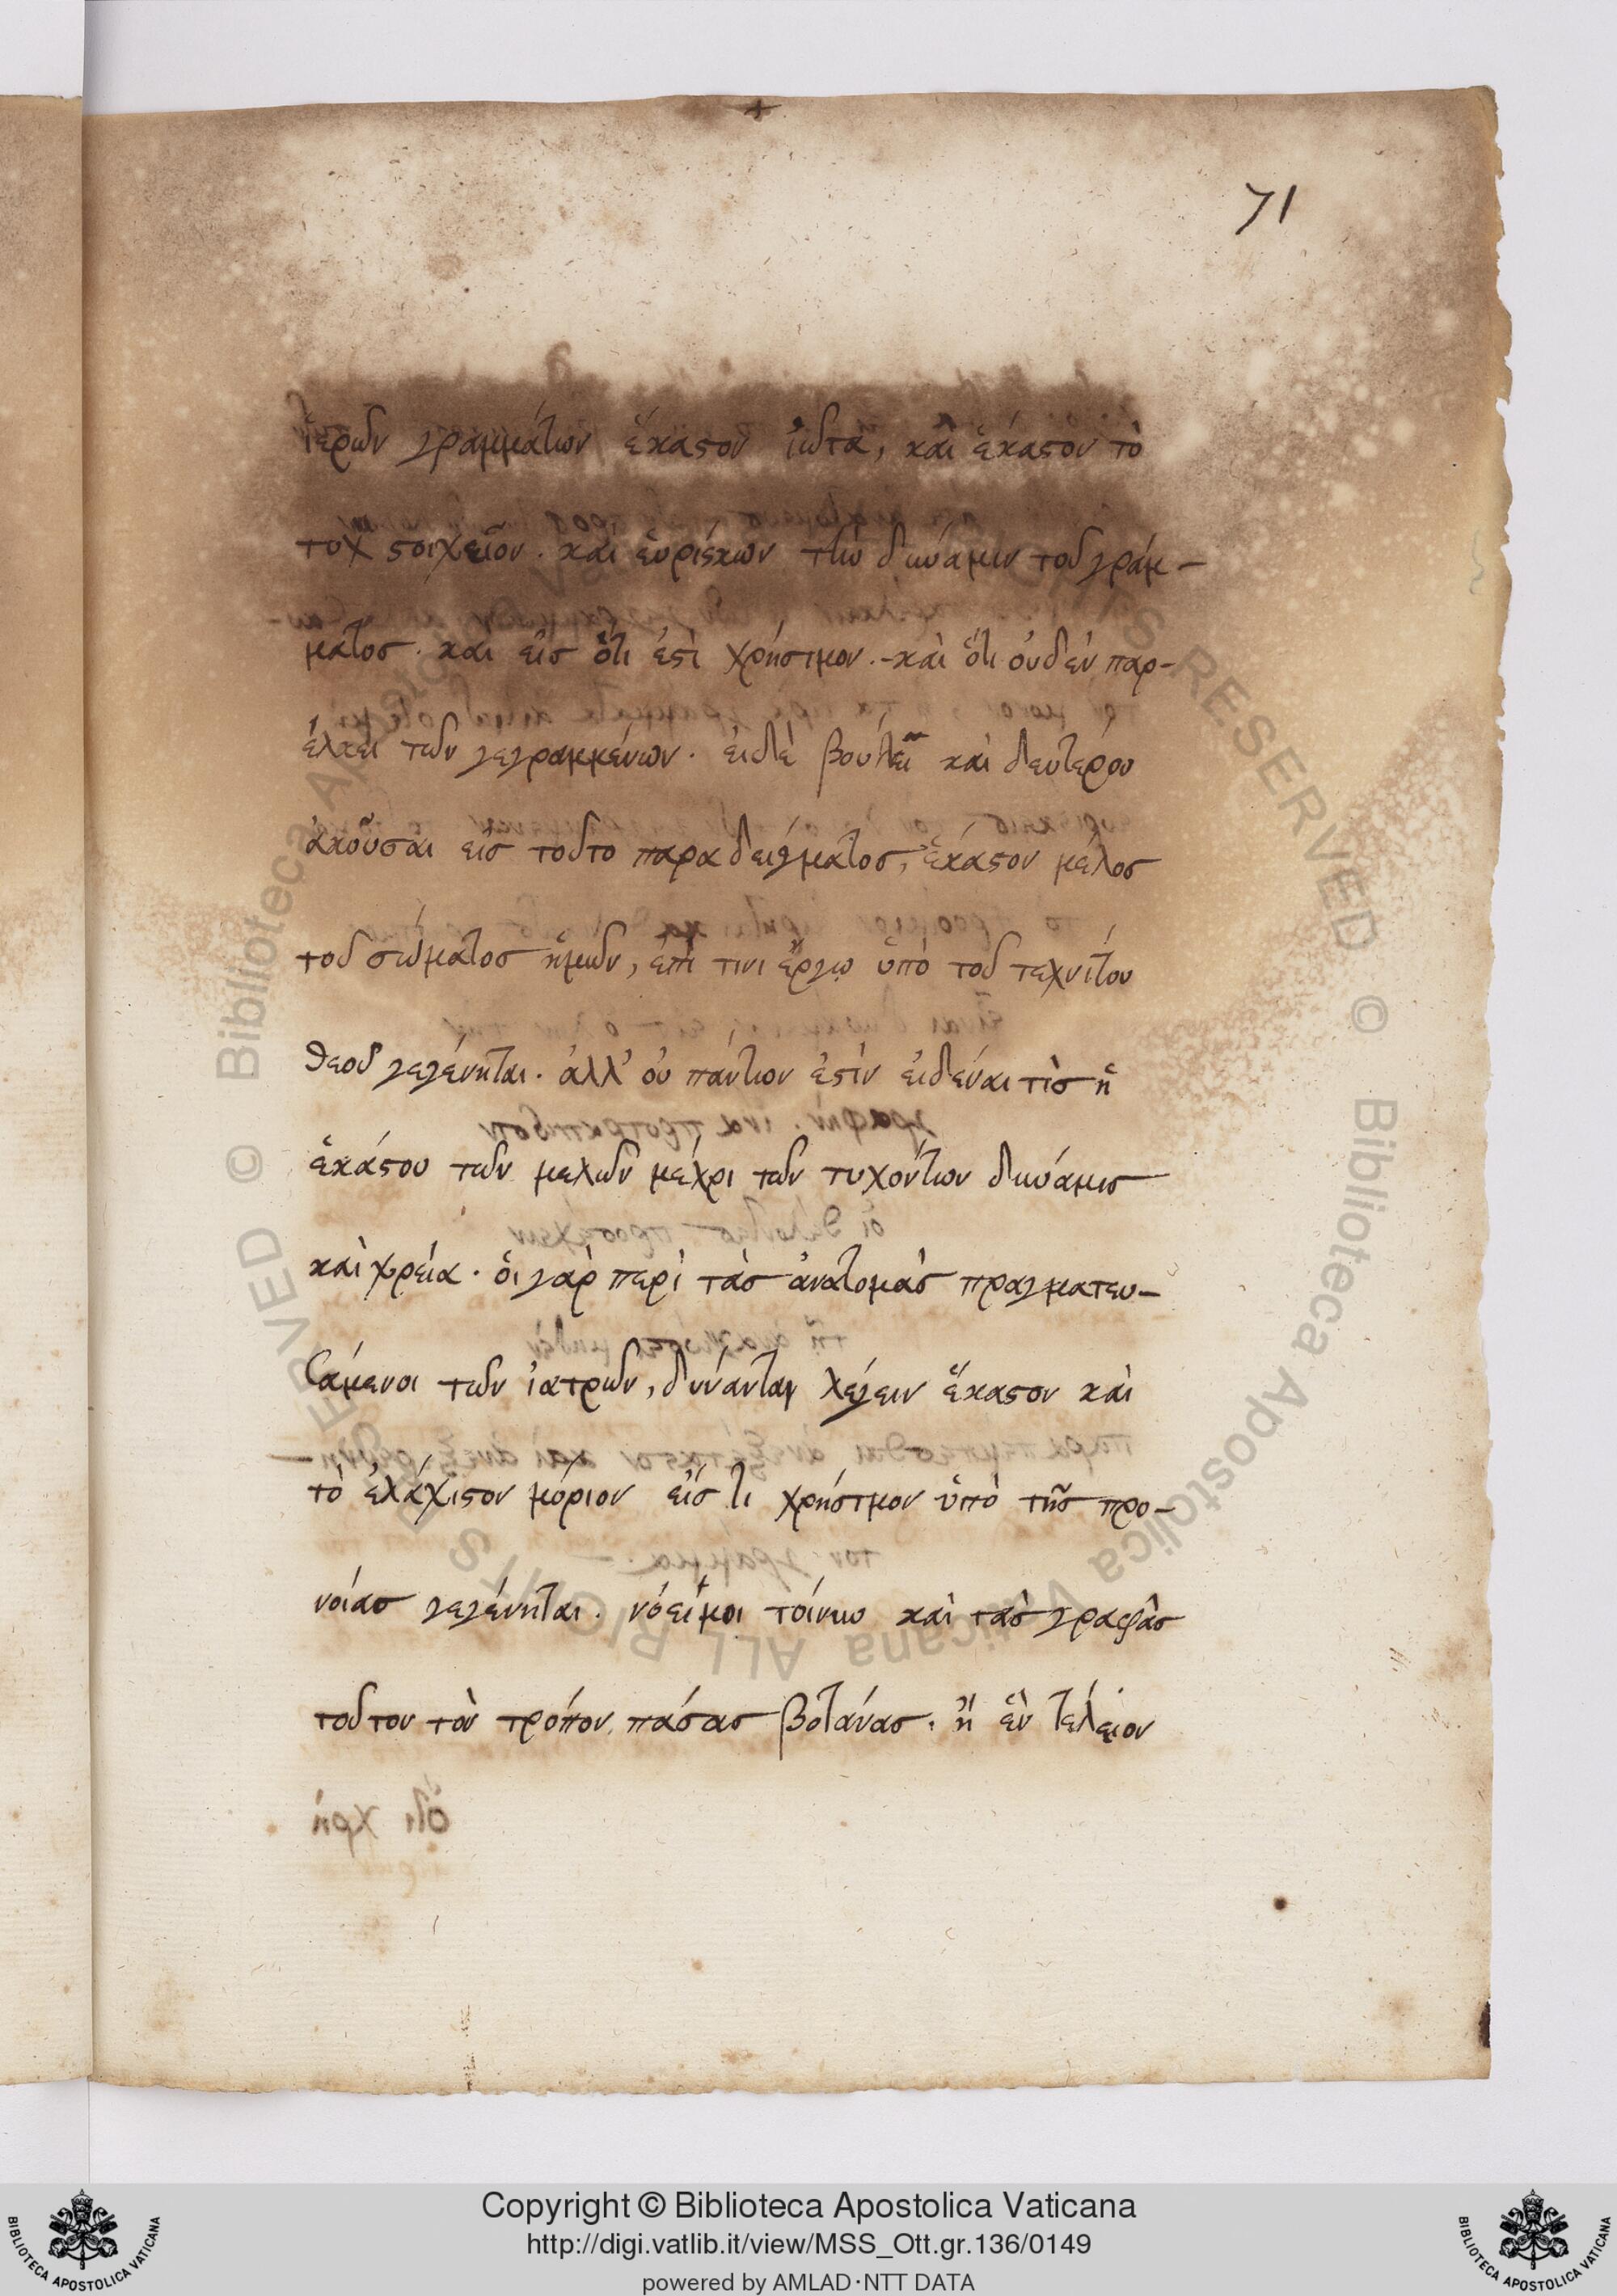 71
ἱερῶν γραμμάτων ἕκαστον ἰῶτα, καὶ ἕκαστον τὸ
τυχὸν στοιχεῖον. καὶ εὑρίσκων τὴν δύναμιν τοῦ γράμ-
ματος. καὶ εἰς ὅτι ἐστὶ χρήσιμον. καὶ ὅτι οὐδὲν παρ-
έλκει τῶν γεγραμμένων. εἰ δὲ βούλει καὶ δευτέρου
ἀκοῦσαι εἰς τοῦτο παραδείγματος, ἕκαστον μέλος
τοῦ σώματος ἡμῶν, ἐπί τινι ἔργῳ ὑπὸ τοῦ τεχνίτου
θεοῦ γεγένηται. ἀλλ' οὐ πάντων ἐστὶν εἰδέναι τίς ἡ
ἑκάστου τῶν μελῶν μέχρι τῶν τυχόντων δύναμις
καὶ χρεία. οἱ γὰρ περὶ τὰς ἀνατομὰς πραγματευ-
σάμενοι τῶν ἰατρῶν, δύνανται λέγειν ἕκαστον καὶ
τὸ ἐλάχιστον μόριον εἰς τί χρήσιμον ὑπὸ τῆς προ-
νοίας γεγένηται. νόει μοι τοίνυν καὶ τὰς γραφὰς
τοῦτον τὸν τρόπον πάσας βοτάνας. ἢ ἓν τέλειον
Copyright © Biblioteca Apostolica Vaticana
http://digi.vatlib.it/view/MSS_Ott.gr.136/0149
powered by AMLAD·NTT DATA
BIBLIOTECA APOSTOLICA VATICANA
BIBLIOTECA APOSTOLICA VATICANA